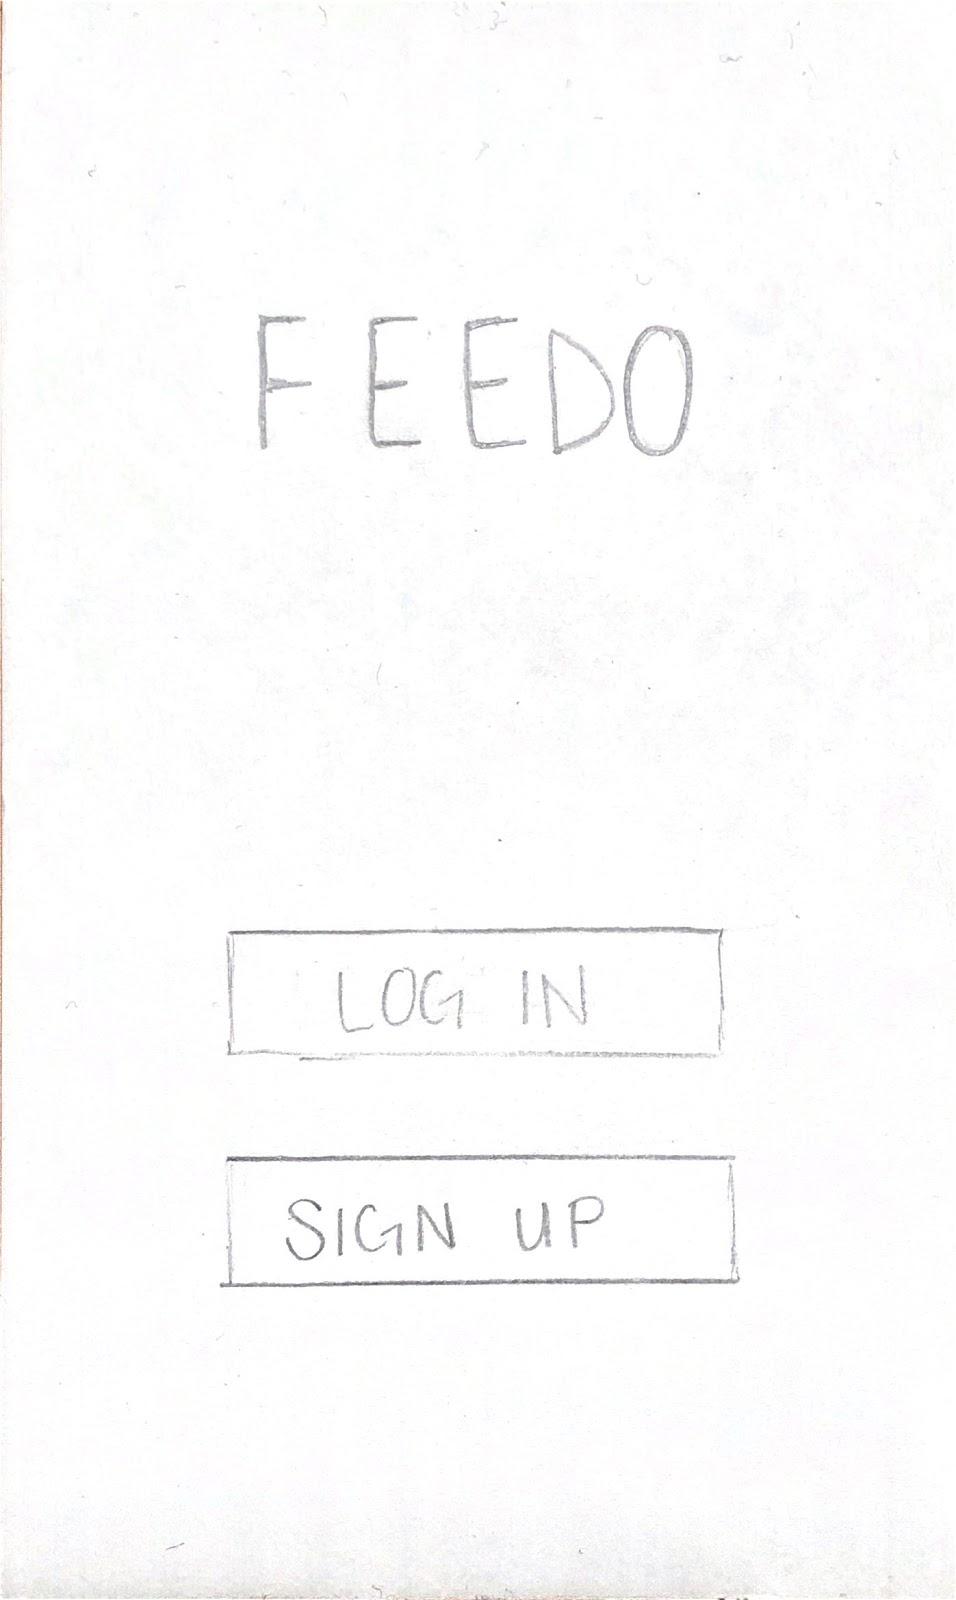 FEEDO
LOG IN
SIGN UP